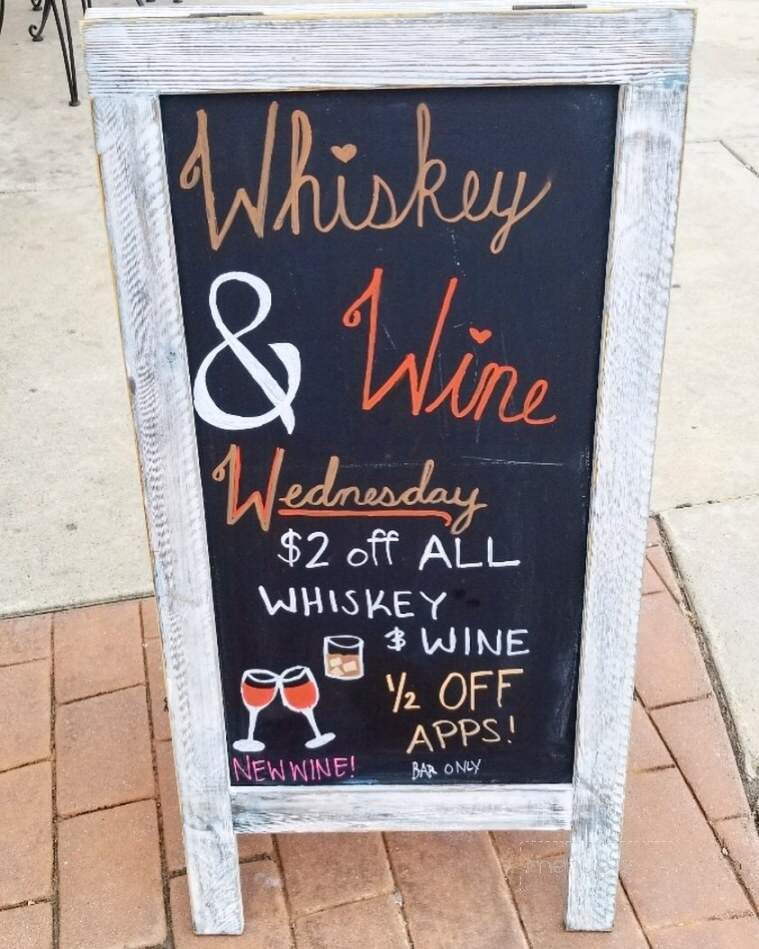 Whiskey
& Wine
Wednesday
$2 off ALL
WHISKEY
& WINE
½ OFF
APPS!
NEW WINE! BAR ONLY